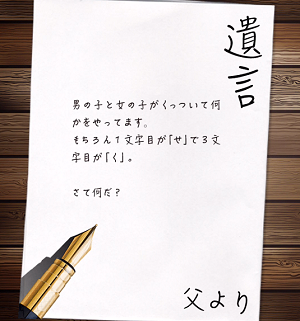 遺言
男の子と女の子がくっついて何
かをやってます。
そちろん1文字目が「せ」で3文
字目が「く」。
さて何だ？
父より